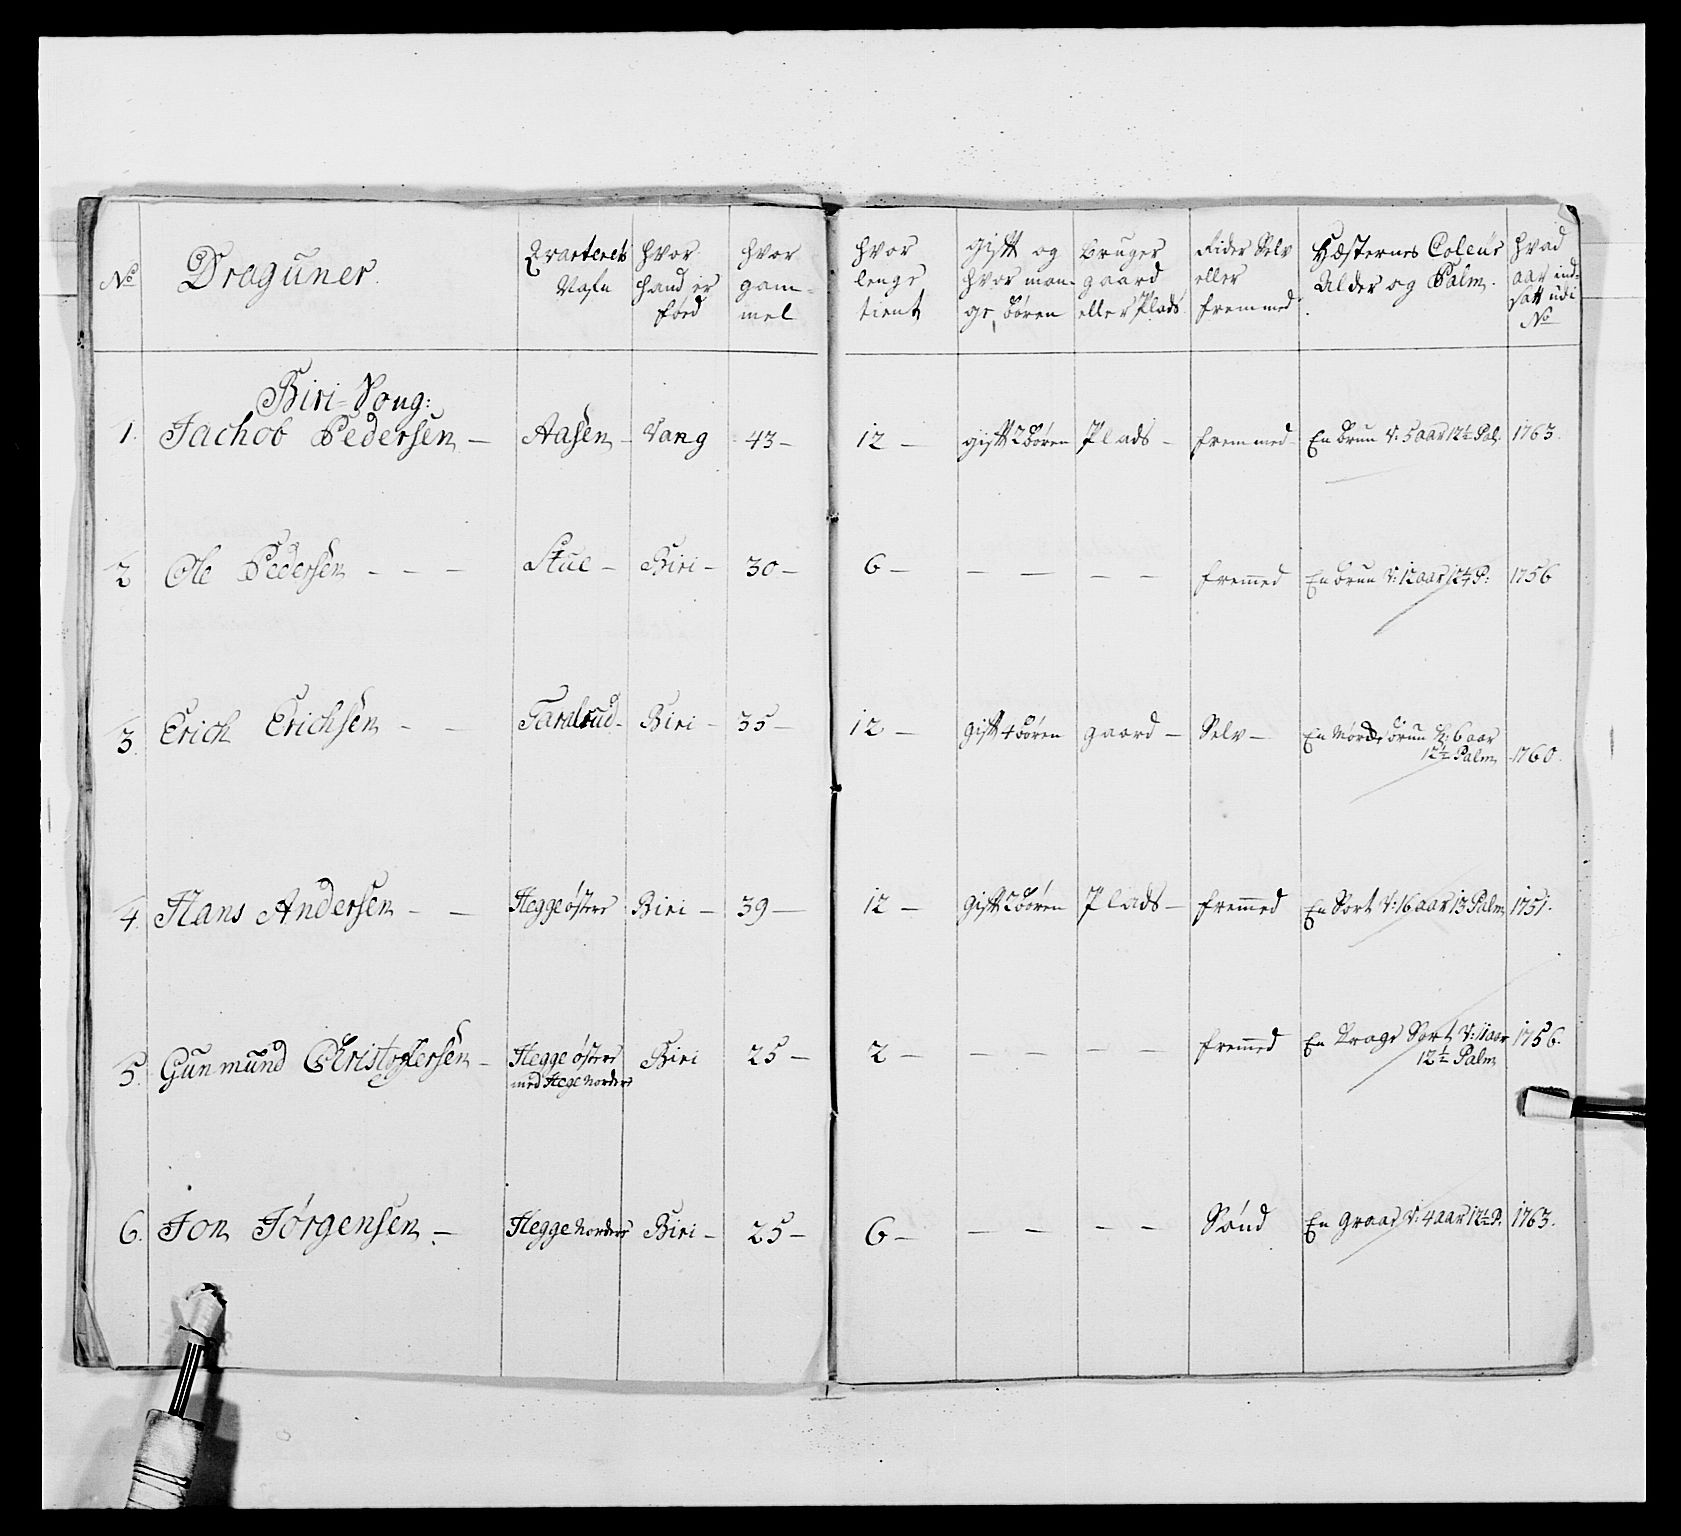 No Draguner. Qvarterets Nafn hvor hand er fød hvor gammel hvor lenge tient gift og hvor mange børen bruger gaard eller Plads Rider Selv eller fremmed Hæsternes Coleur Alder og Palm. hvad aar indsatt udi No
Biri-Song:
1. Jachob Pedersen — Aasen — Vang 43 — 12 — gift 2 børen Plads — fremmed En brun V: 5 aar 12½ Pal. 1763.
2 Ole Pedersen — — — Stue — Biri — 30 — 6 — — — — — — fremed En brun V: 12 aar 12¼ P: 1756
3. Erich Erichsen — — Taralrud — Biri — 35 — 12 — Gift 4 børen gaard — Selv — En Mørcke brun H: 6 aar
12½ Palm 1760.
4. Hans Andersen — — Hegge østre Biri — 39 — 12 — Gift 2 børen Plads — fremed En Sort V: 16 aar 13 Palm 1751.
5. Gunmund Christophersen — Hegge østre Biri 25 — 2 — — — — — — fremed En Sort V: 11 aar 1756.
med Hege Nordre 12½ Palm
6. Jon Jørgensen — Hegge Nordre Biri — 25 — 6 — — — — — En Graae V: 4 aar 12½ P. 1763.